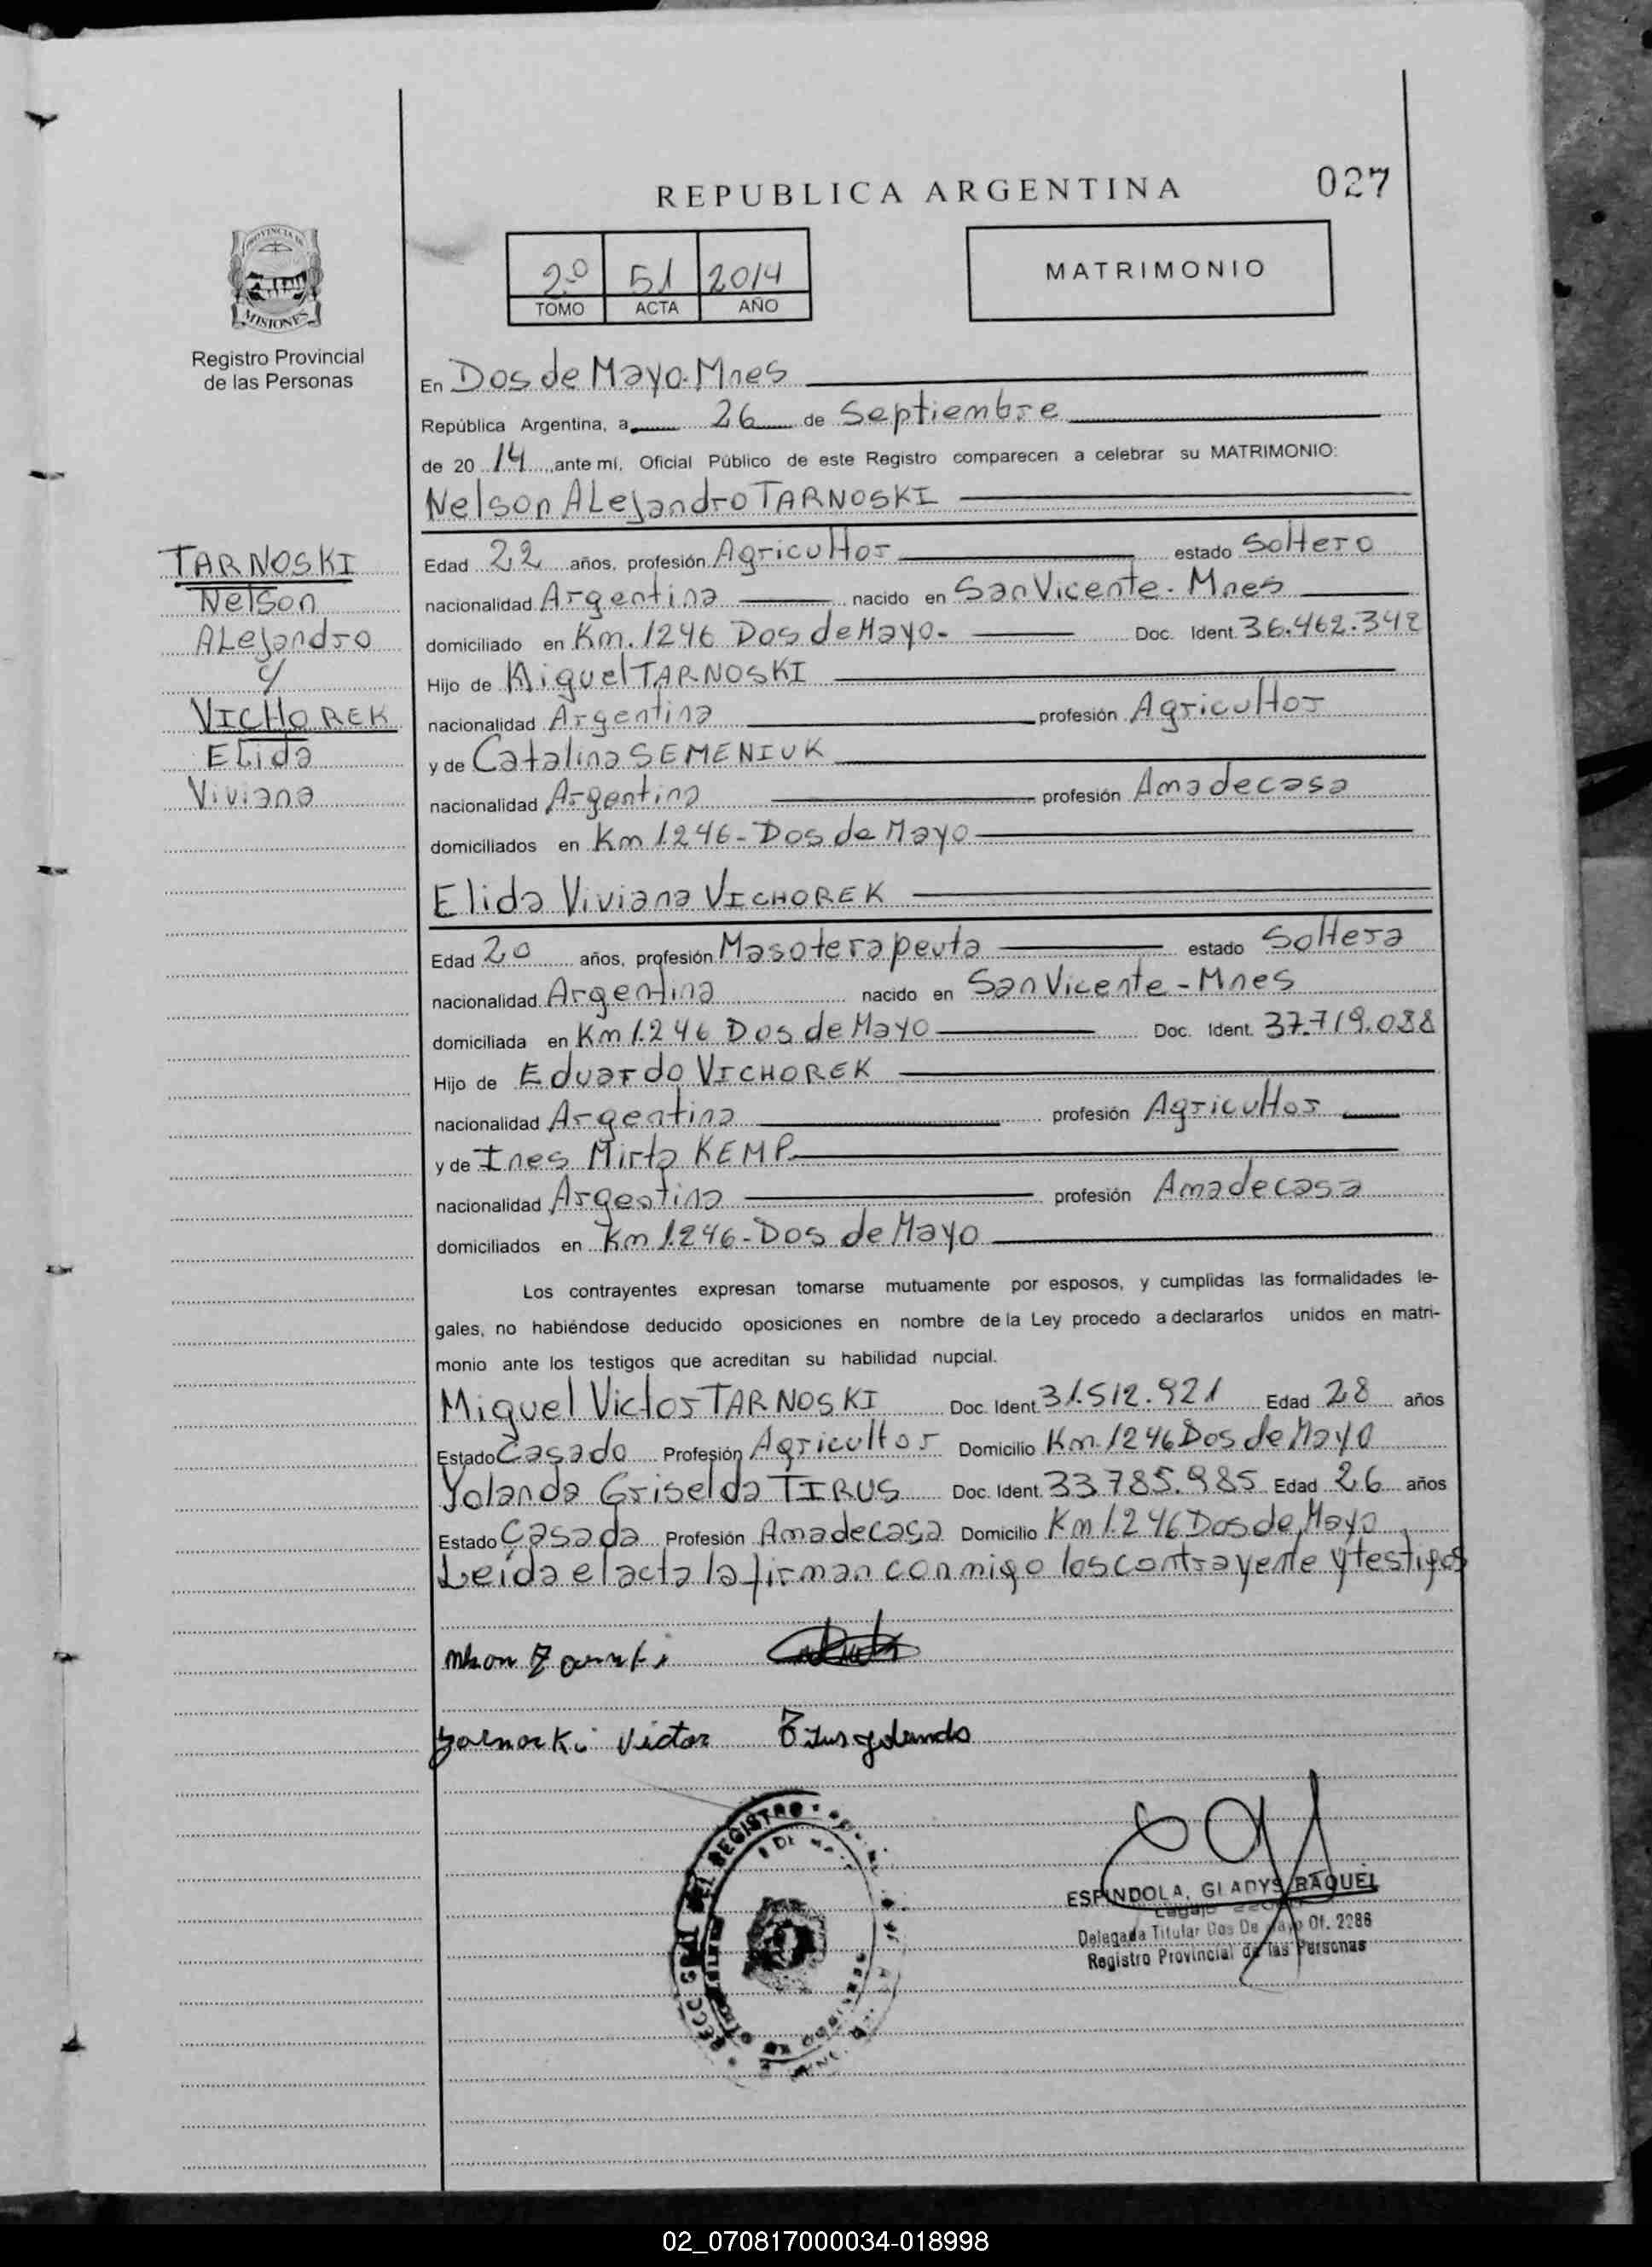 REPUBLICA ARGENTINA
027
2º 51 2014
TOMO ACTA AÑO
MATRIMONIO
PROVINCIA DE
MISIONES
Registro Provincial
de las Personas
En Dos de Mayo-Mnes
República Argentina, a 26 de Septiembre
de 20 14 ,ante mí, Oficial Público de este Registro comparecen a celebrar su MATRIMONIO:
Nelson ALejandro TARNOSKI
TARNOSKI
Nelson
ALejandro
y
VICHOREK
Elida
Viviana
Edad 22 años, profesión Agricultor estado Soltero
nacionalidad Argentina nacido en San Vicente - Mnes
domiciliado en Km. 1246 Dos de Mayo- Doc. Ident. 36.462.342
Hijo de Miguel TARNOSKI
nacionalidad Argentina profesión Agricultor
y de Catalina SEMENIUK
nacionalidad Argentina profesión Amadecasa
domiciliados en Km 1.246-Dos de Mayo
Elida Viviana VICHOREK
Edad 20 años, profesión Masoterapeuta estado Soltera
nacionalidad Argentina nacido en San Vicente - Mnes
domiciliada en Km 1.246 Dos de Mayo Doc. Ident. 37.719.088
Hijo de Eduardo VICHOREK
nacionalidad Argentina profesión Agricultor
y de Ines Mirta KEMP
nacionalidad Argentina profesión Amadecasa
domiciliados en Km 1.246-Dos de Mayo
Los contrayentes expresan tomarse mutuamente por esposos, y cumplidas las formalidades le-
gales, no habiéndose deducido oposiciones en nombre de la Ley procedo a declararlos unidos en matri-
monio ante los testigos que acreditan su habilidad nupcial.
Miguel Victor TARNOSKI Doc. Ident. 31.512.921 Edad 28 años
Estado Casado Profesión Agricultor Domicilio Km. 1246 Dos de Mayo
Yolanda Griselda TIRUS Doc. Ident. 33.785.985 Edad 26 años
Estado Casada Profesión Amadecasa Domicilio Km 1.246 Dos de Mayo
Leída el acta la firman conmigo los contrayente y testigos
Tarnoski Victor Tirus Yolanda
REGISTRO
ESPINDOLA, GLADYS RAQUEL
Delegada Titular Dos De Mayo Of. 2286
Registro Provincial de las Personas
02_070817000034-018998